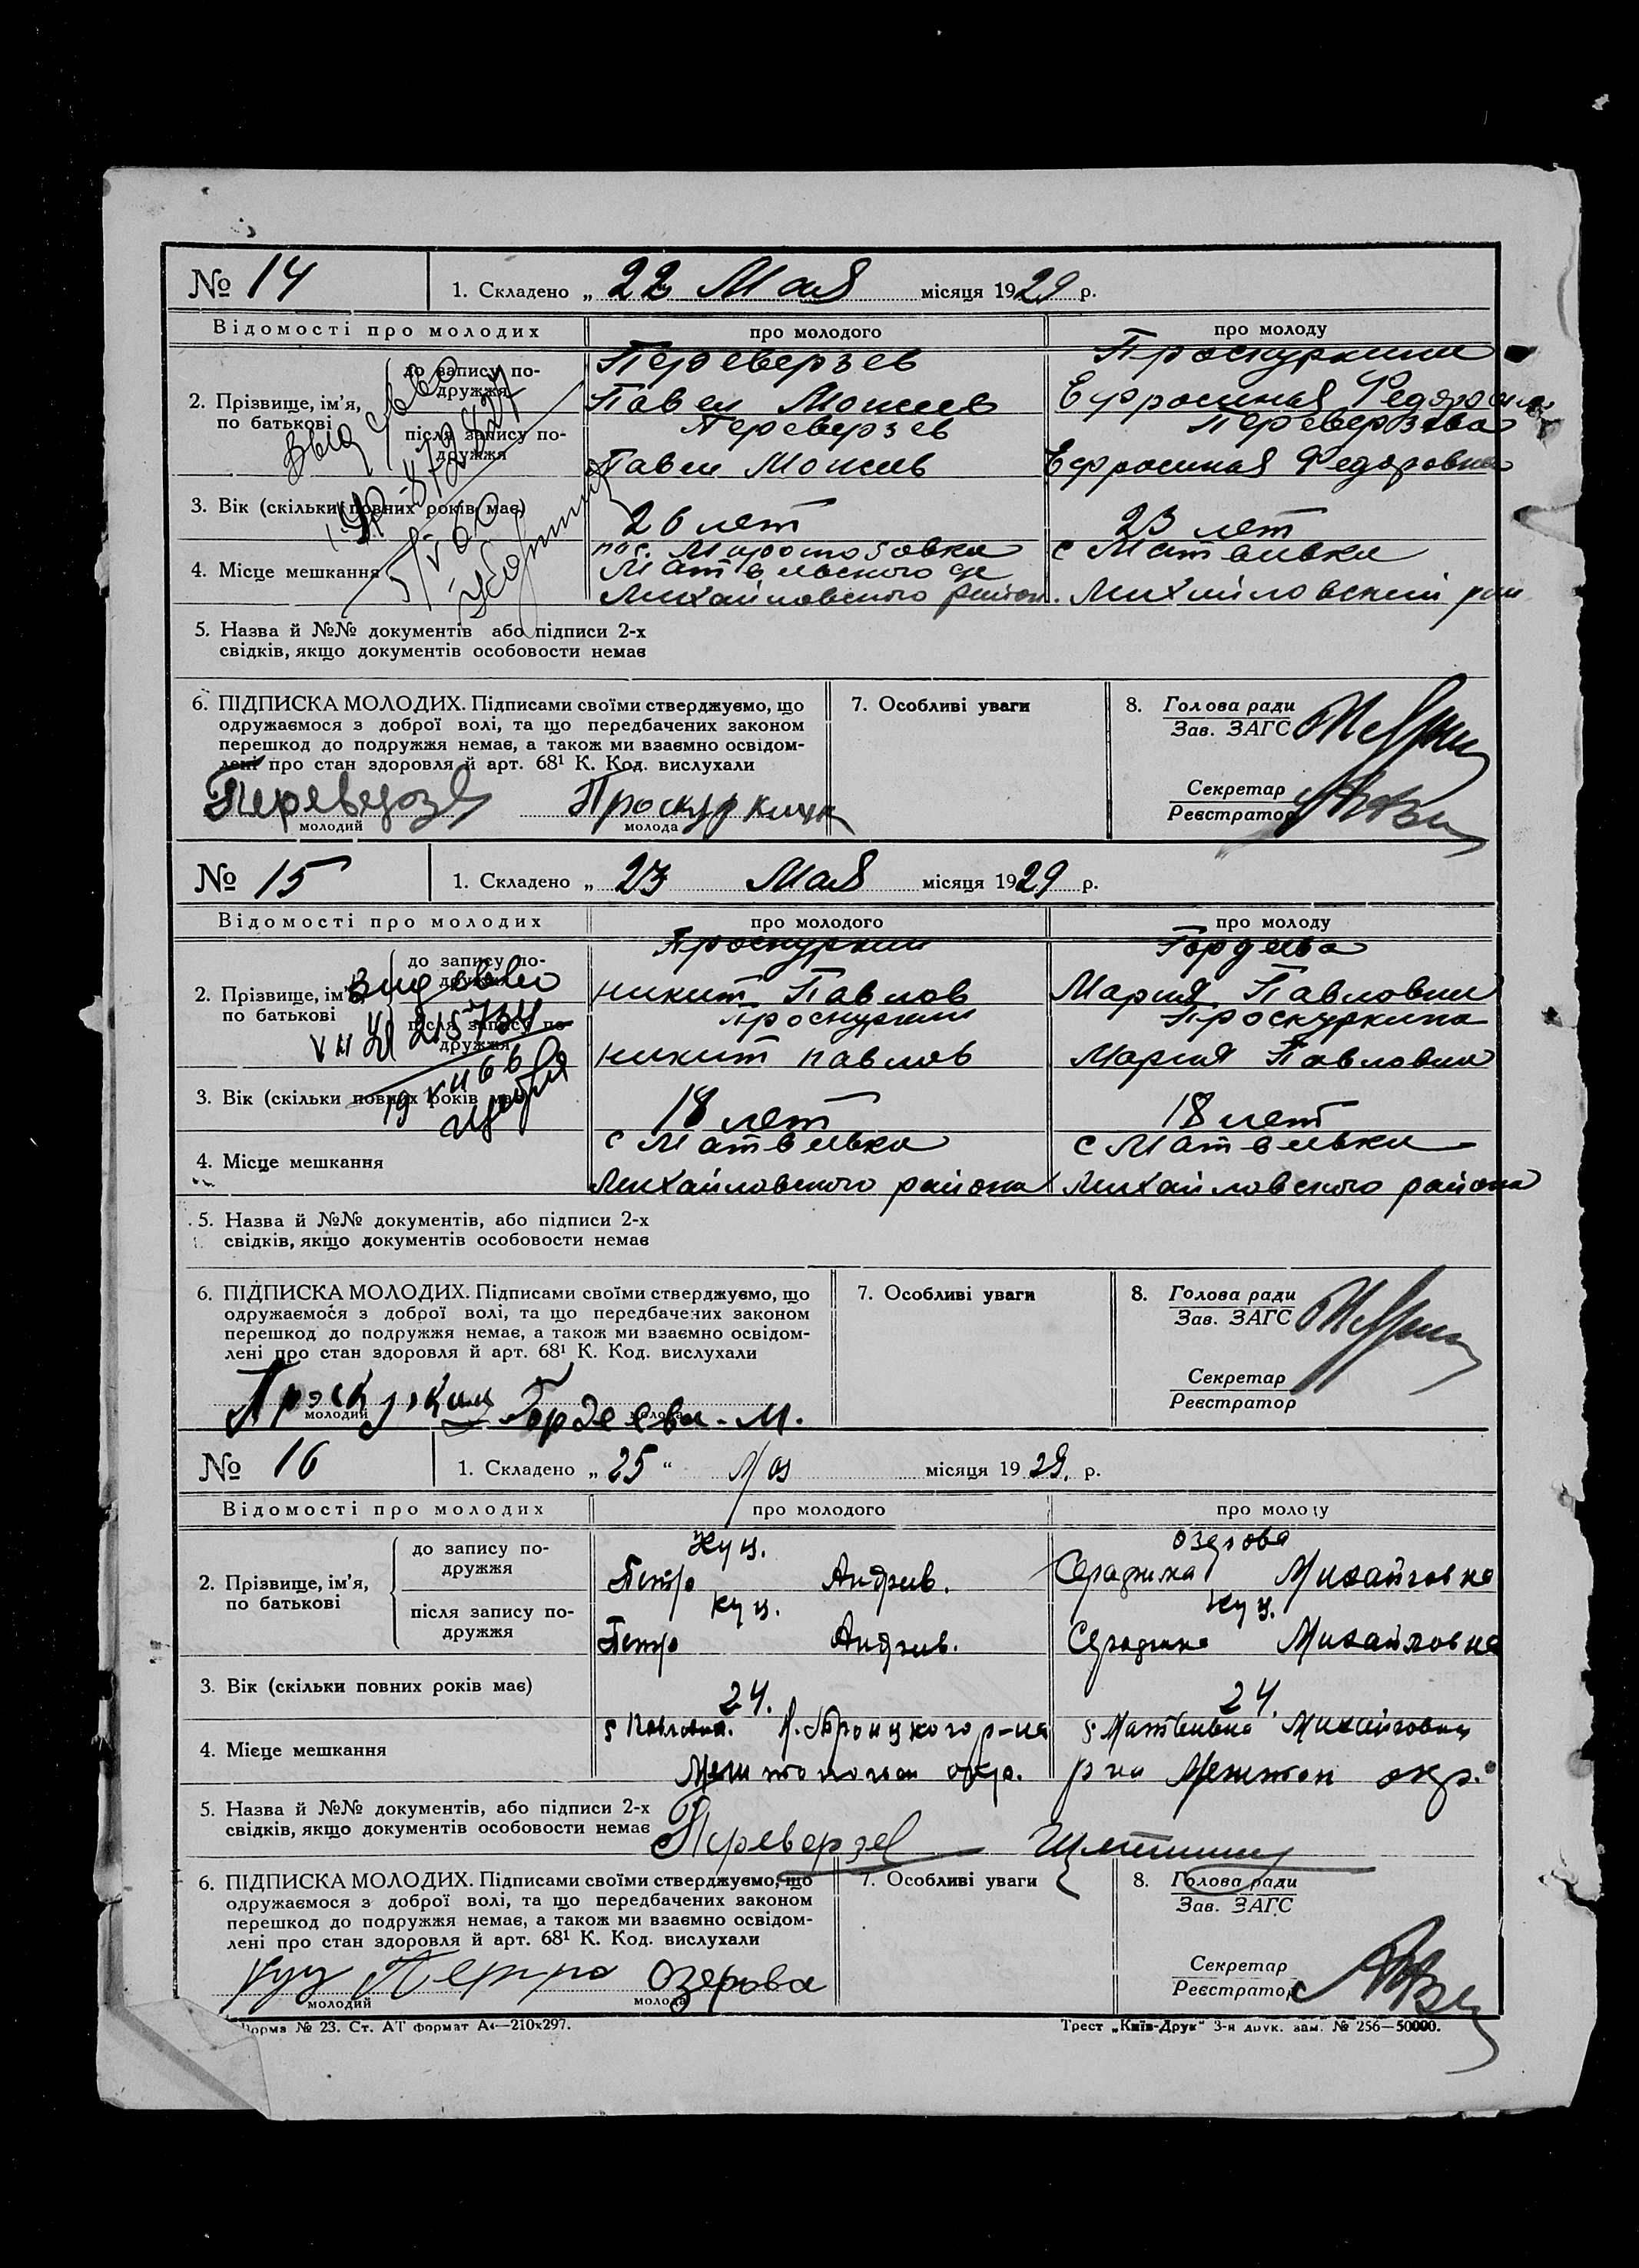 № 14 1. Складено „ 22 Мая місяця 1929 р.
Відомості про молодих про молодого про молоду
Переверзев Проскуркина
до запису по-
дружжя
2. Прізвище, ім'я,
по батькові
Павел Моисеев Ефросиния Федоровна
Переверзев Переверзева
після запису по-
дружжя
Павел Моисеев Ефросиния Федоровна
3. Вік (скільки повних років має) 26 лет 23 лет
пос. с Матвеевка
4. Місце мешкання
Матвеевского
Михайловского район. Михайловский
5. Назва й №№ документів або підписи 2-х
свідків, якщо документів особовости немає
6. ПІДПИСКА МОЛОДИХ. Підписами своїми стверджуємо, що
одружаємося з доброї волі, та що передбачених законом
перешкод до подружжя немає, а також ми взаємно освідом-
лені про стан здоровля й арт. 68¹ К. Код. вислухали
Переверзев Проскуркина
молодий молода
7. Особливі уваги
8. Голова ради
Зав. ЗАГС
Секретар
Реєстратор
№ 15 1. Складено „ 23 Мая місяця 1929 р.
Відомості про молодих про молодого про молоду
Проскуркин Гордеева
до запису по-
дружжя
2. Прізвище, ім'я,
по батькові
Никит Павлов Мария Павловна
Проскуркин Проскуркина
після запису по-
дружжя
Никит Павлов Мария Павловна
3. Вік (скільки повних років має) 18 лет 18 лет
с Матвеевка с Матвеевка
4. Місце мешкання
Михайловского района Михайловского района
5. Назва й №№ документів, або підписи 2-х
свідків, якщо документів особовости немає
6. ПІДПИСКА МОЛОДИХ. Підписами своїми стверджуємо, що
одружаємося з доброї волі, та що передбачених законом
перешкод до подружжя немає, а також ми взаємно освідом-
лені про стан здоровля й арт. 68¹ К. Код. вислухали
Проскуркин Гордеева М.
молодий молода
7. Особливі уваги
8. Голова ради
Зав. ЗАГС
Секретар
Реєстратор
№ 16 1. Складено „ 25 “ Мая місяця 1929. р.
Відомості про молодих про молодого про молоду
Куц. Озерова
до запису по-
дружжя
2. Прізвище, ім'я,
по батькові
Петро Андрив. Михайловна
Куц. Куц.
після запису по-
дружжя
Петро Андрив. Михайловна
3. Вік (скільки повних років має) 24. 24.
4. Місце мешкання
окр. р на окр.
5. Назва й №№ документів, або підписи 2-х
свідків, якщо документів особовости немає
Переверзев
6. ПІДПИСКА МОЛОДИХ. Підписами своїми стверджуємо, що
одружаємося з доброї волі, та що передбачених законом
перешкод до подружжя немає, а також ми взаємно освідом-
лені про стан здоровля й арт. 68¹ К. Код. вислухали
Куц Петро Озерова
молодий молода
7. Особливі уваги
8. Голова ради
Зав. ЗАГС
Секретар
Реєстратор
Форма № 23. Ст. АТ формат А4—210х297. Трест „Київ-Друк“ 3-я друк. зам. № 256—50000.